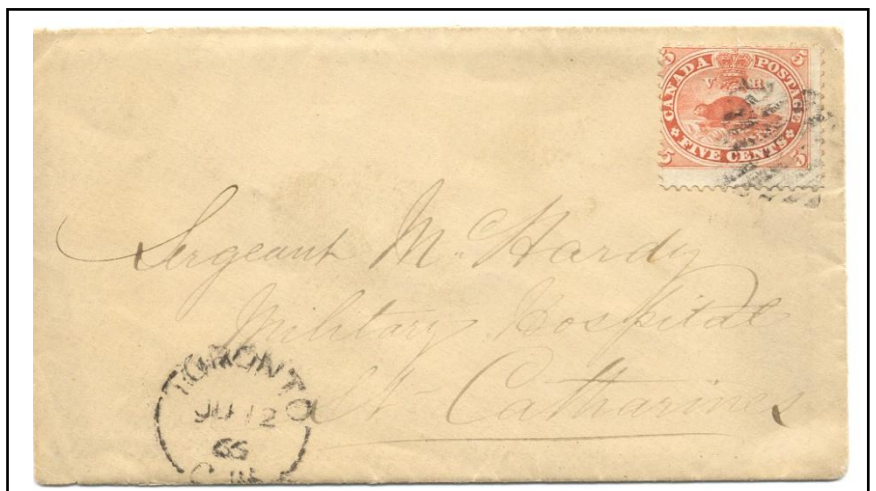 5 CANADA POSTAGE 5
5 FIVE CENTS 5
Sergeant McHardy
Military Hospital
St Catharines
TORONTO
12
C.W.